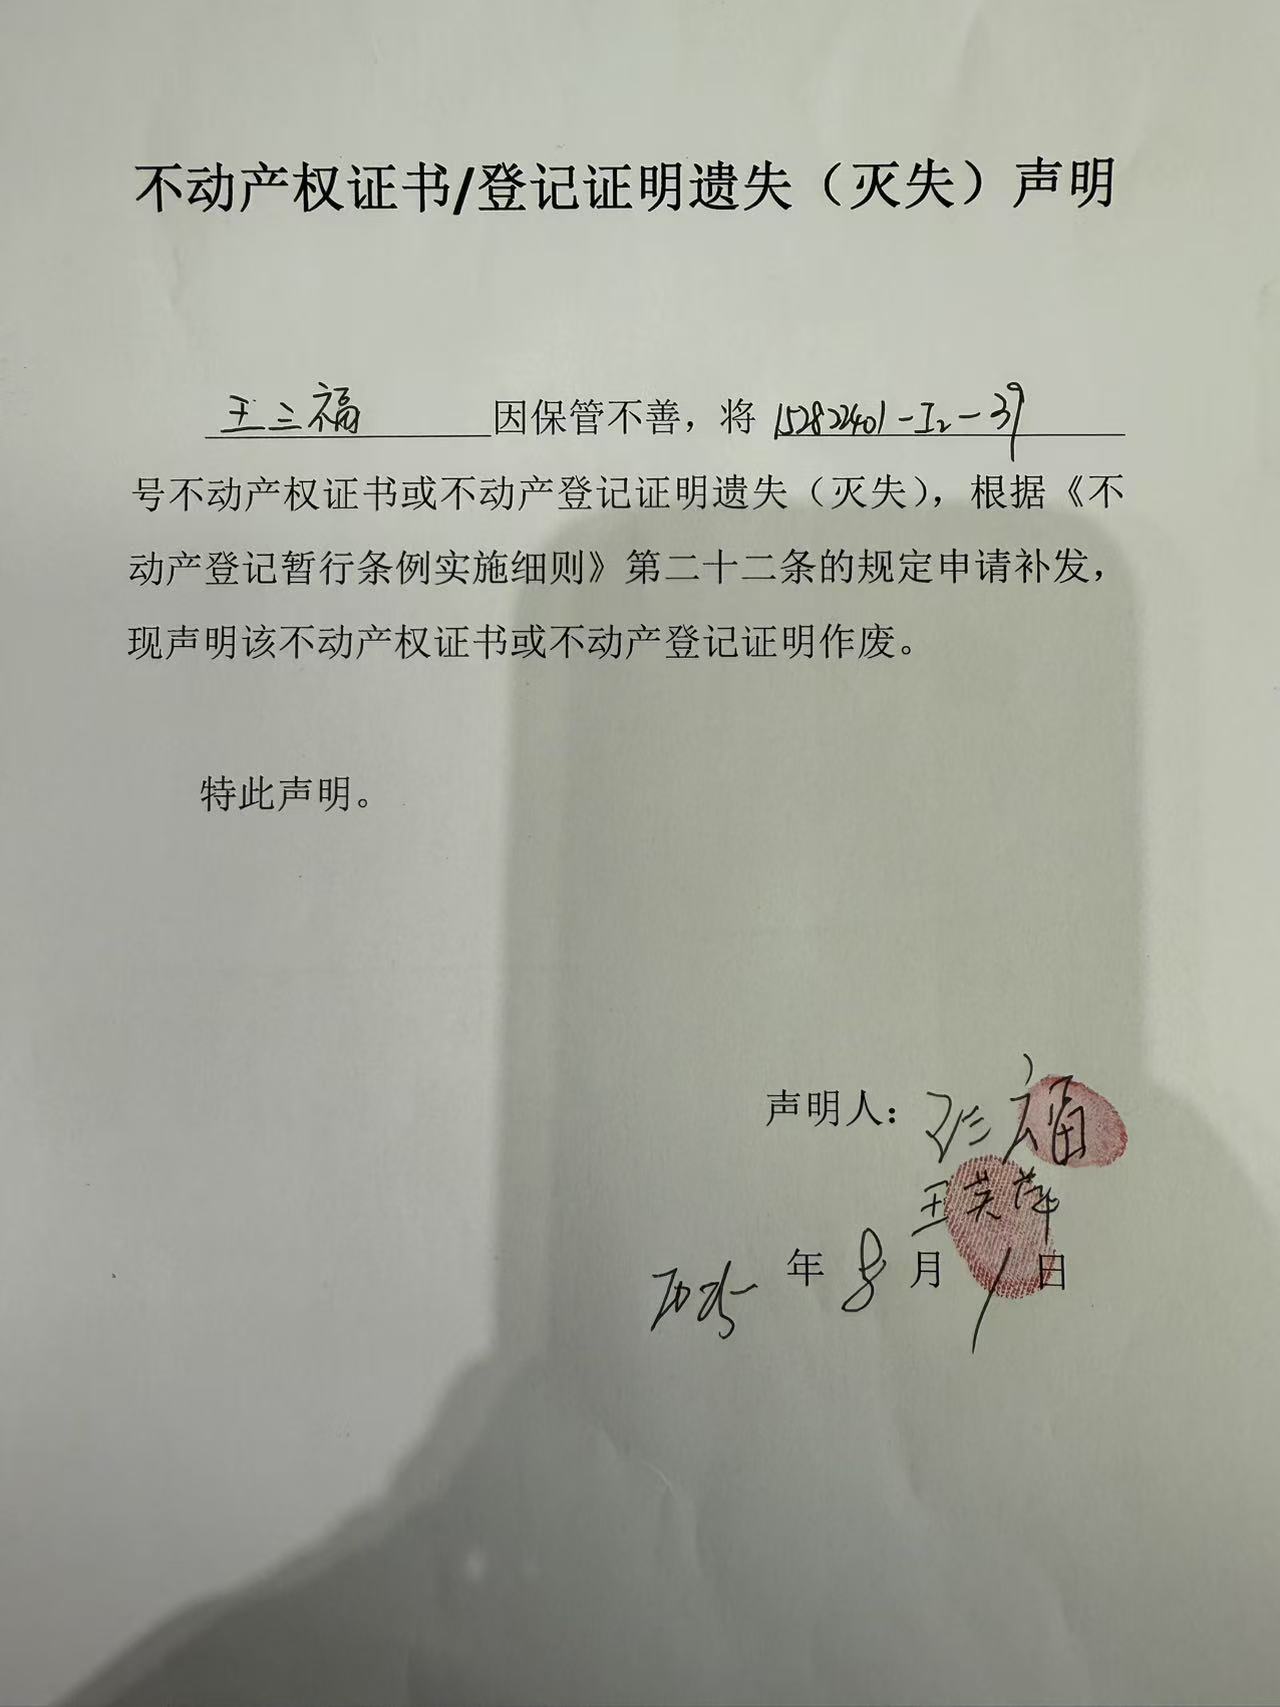 不动产权证书/登记证明遗失（灭失）声明
王三福 因保管不善，将 152822401-I2-39
号不动产权证书或不动产登记证明遗失（灭失），根据《不
动产登记暂行条例实施细则》第二十二条的规定申请补发，
现声明该不动产权证书或不动产登记证明作废。
特此声明。
声明人：王三福
王芙萍
2025 年 8 月 1 日